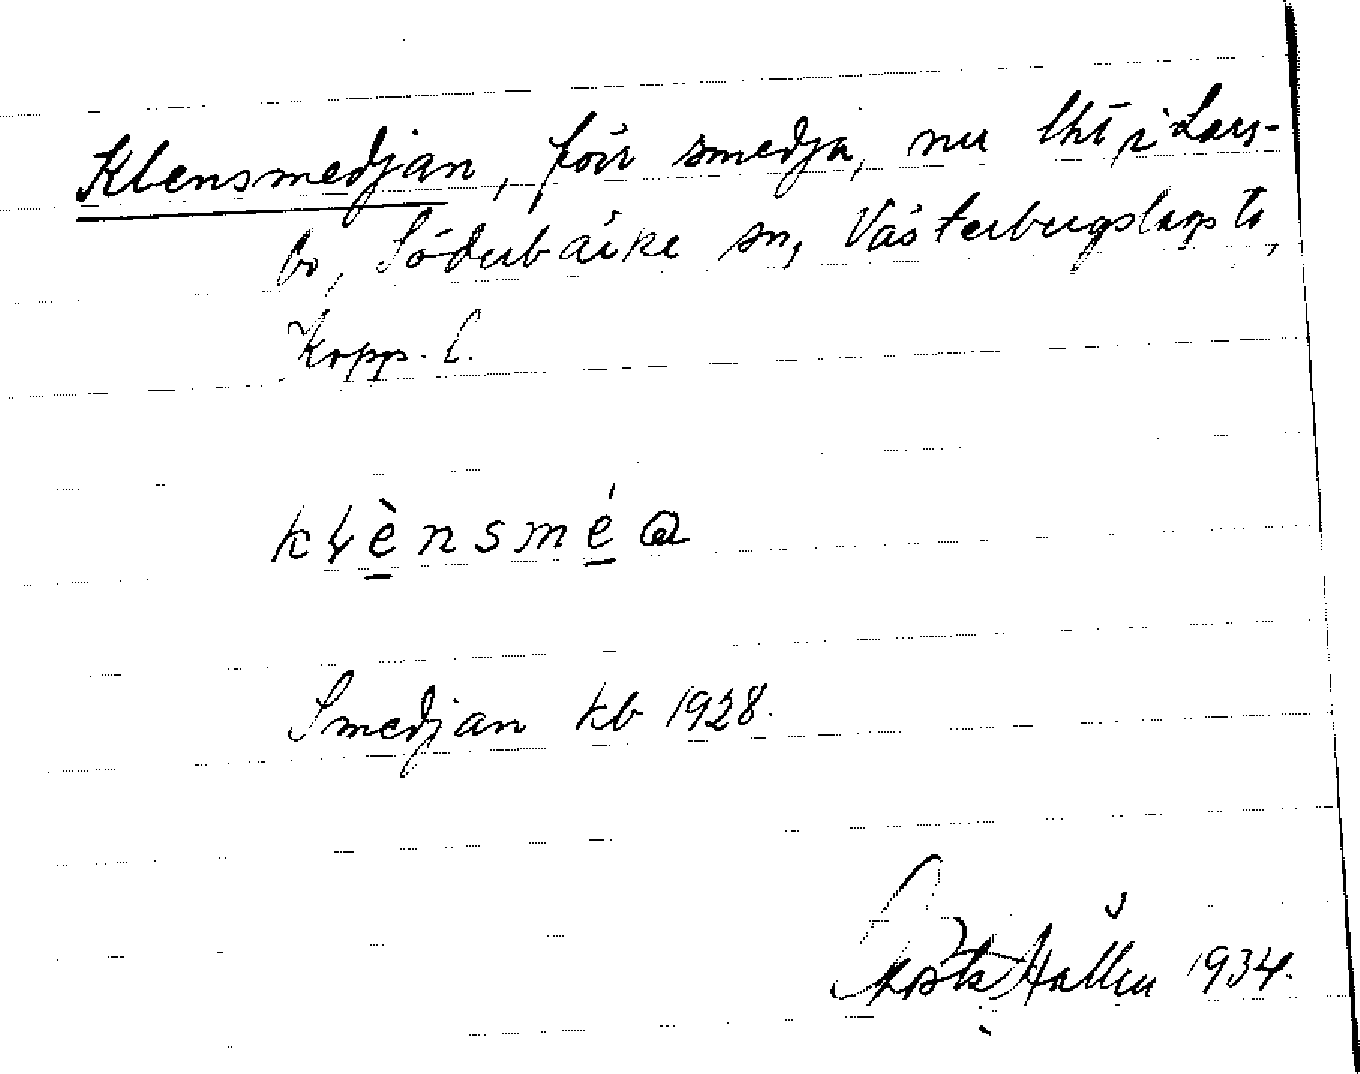 Klensmedjan, förr smedja, nu lht i Lars-
bo, Söderbärke sn, Västerbergslags to,
Kopp. l.
kłènsméa
Smedjan kb 1928.
Hallén 1934.